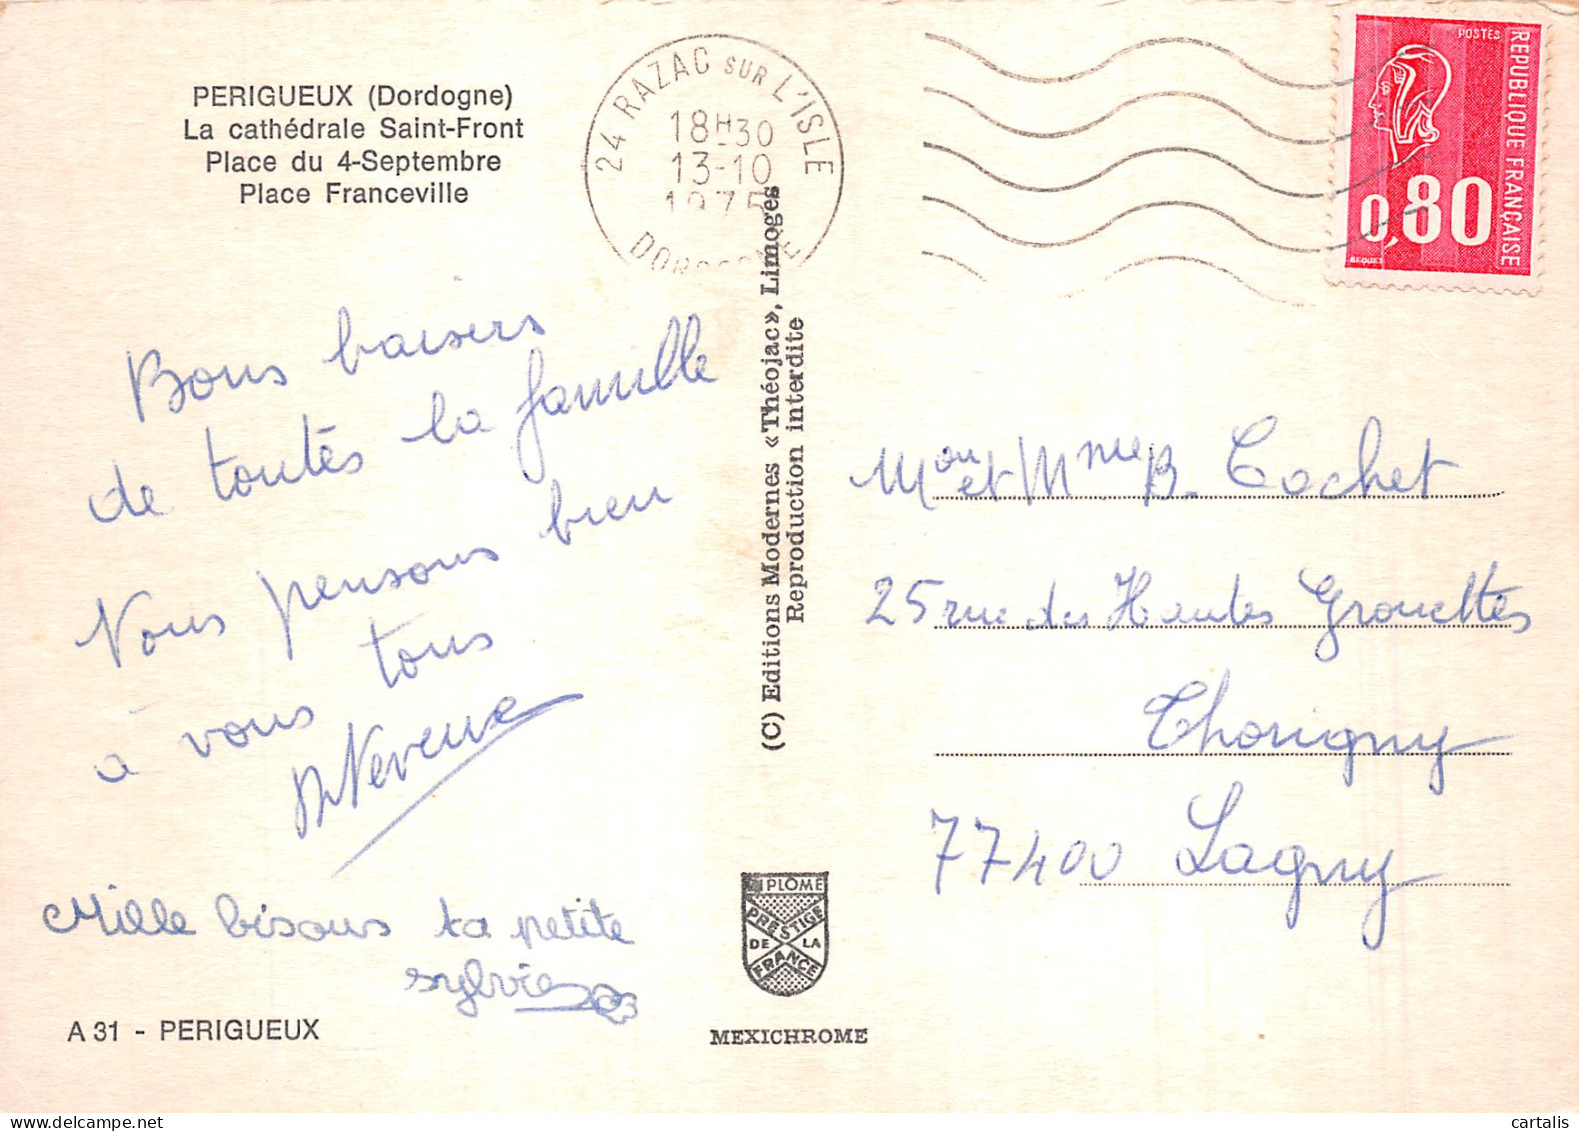 PERIGUEUX (Dordogne)
La cathédrale Saint-Front
Place du 4-Septembre
Place Franceville
24 RAZAC SUR L'ISLE
18H30
13-10
1975
DORDOGNE
POSTES
REPUBLIQUE FRANÇAISE
0,80
BEQUET
Bons baisers
de toutes la famille
Nous pensons bien
à vous tous
Neveue
Mille bisous ta petite
sylvie
A 31 - PERIGUEUX
(C) Editions Modernes «Théojac», Limoges
Reproduction interdite
DIPLOME
PRESTIGE
DE LA
FRANCE
MEXICHROME
Mon et Mme B. Cochet
25 rue des Hautes Grouettes
Thorigny
77400 Lagny
cartalis
delcampe.net